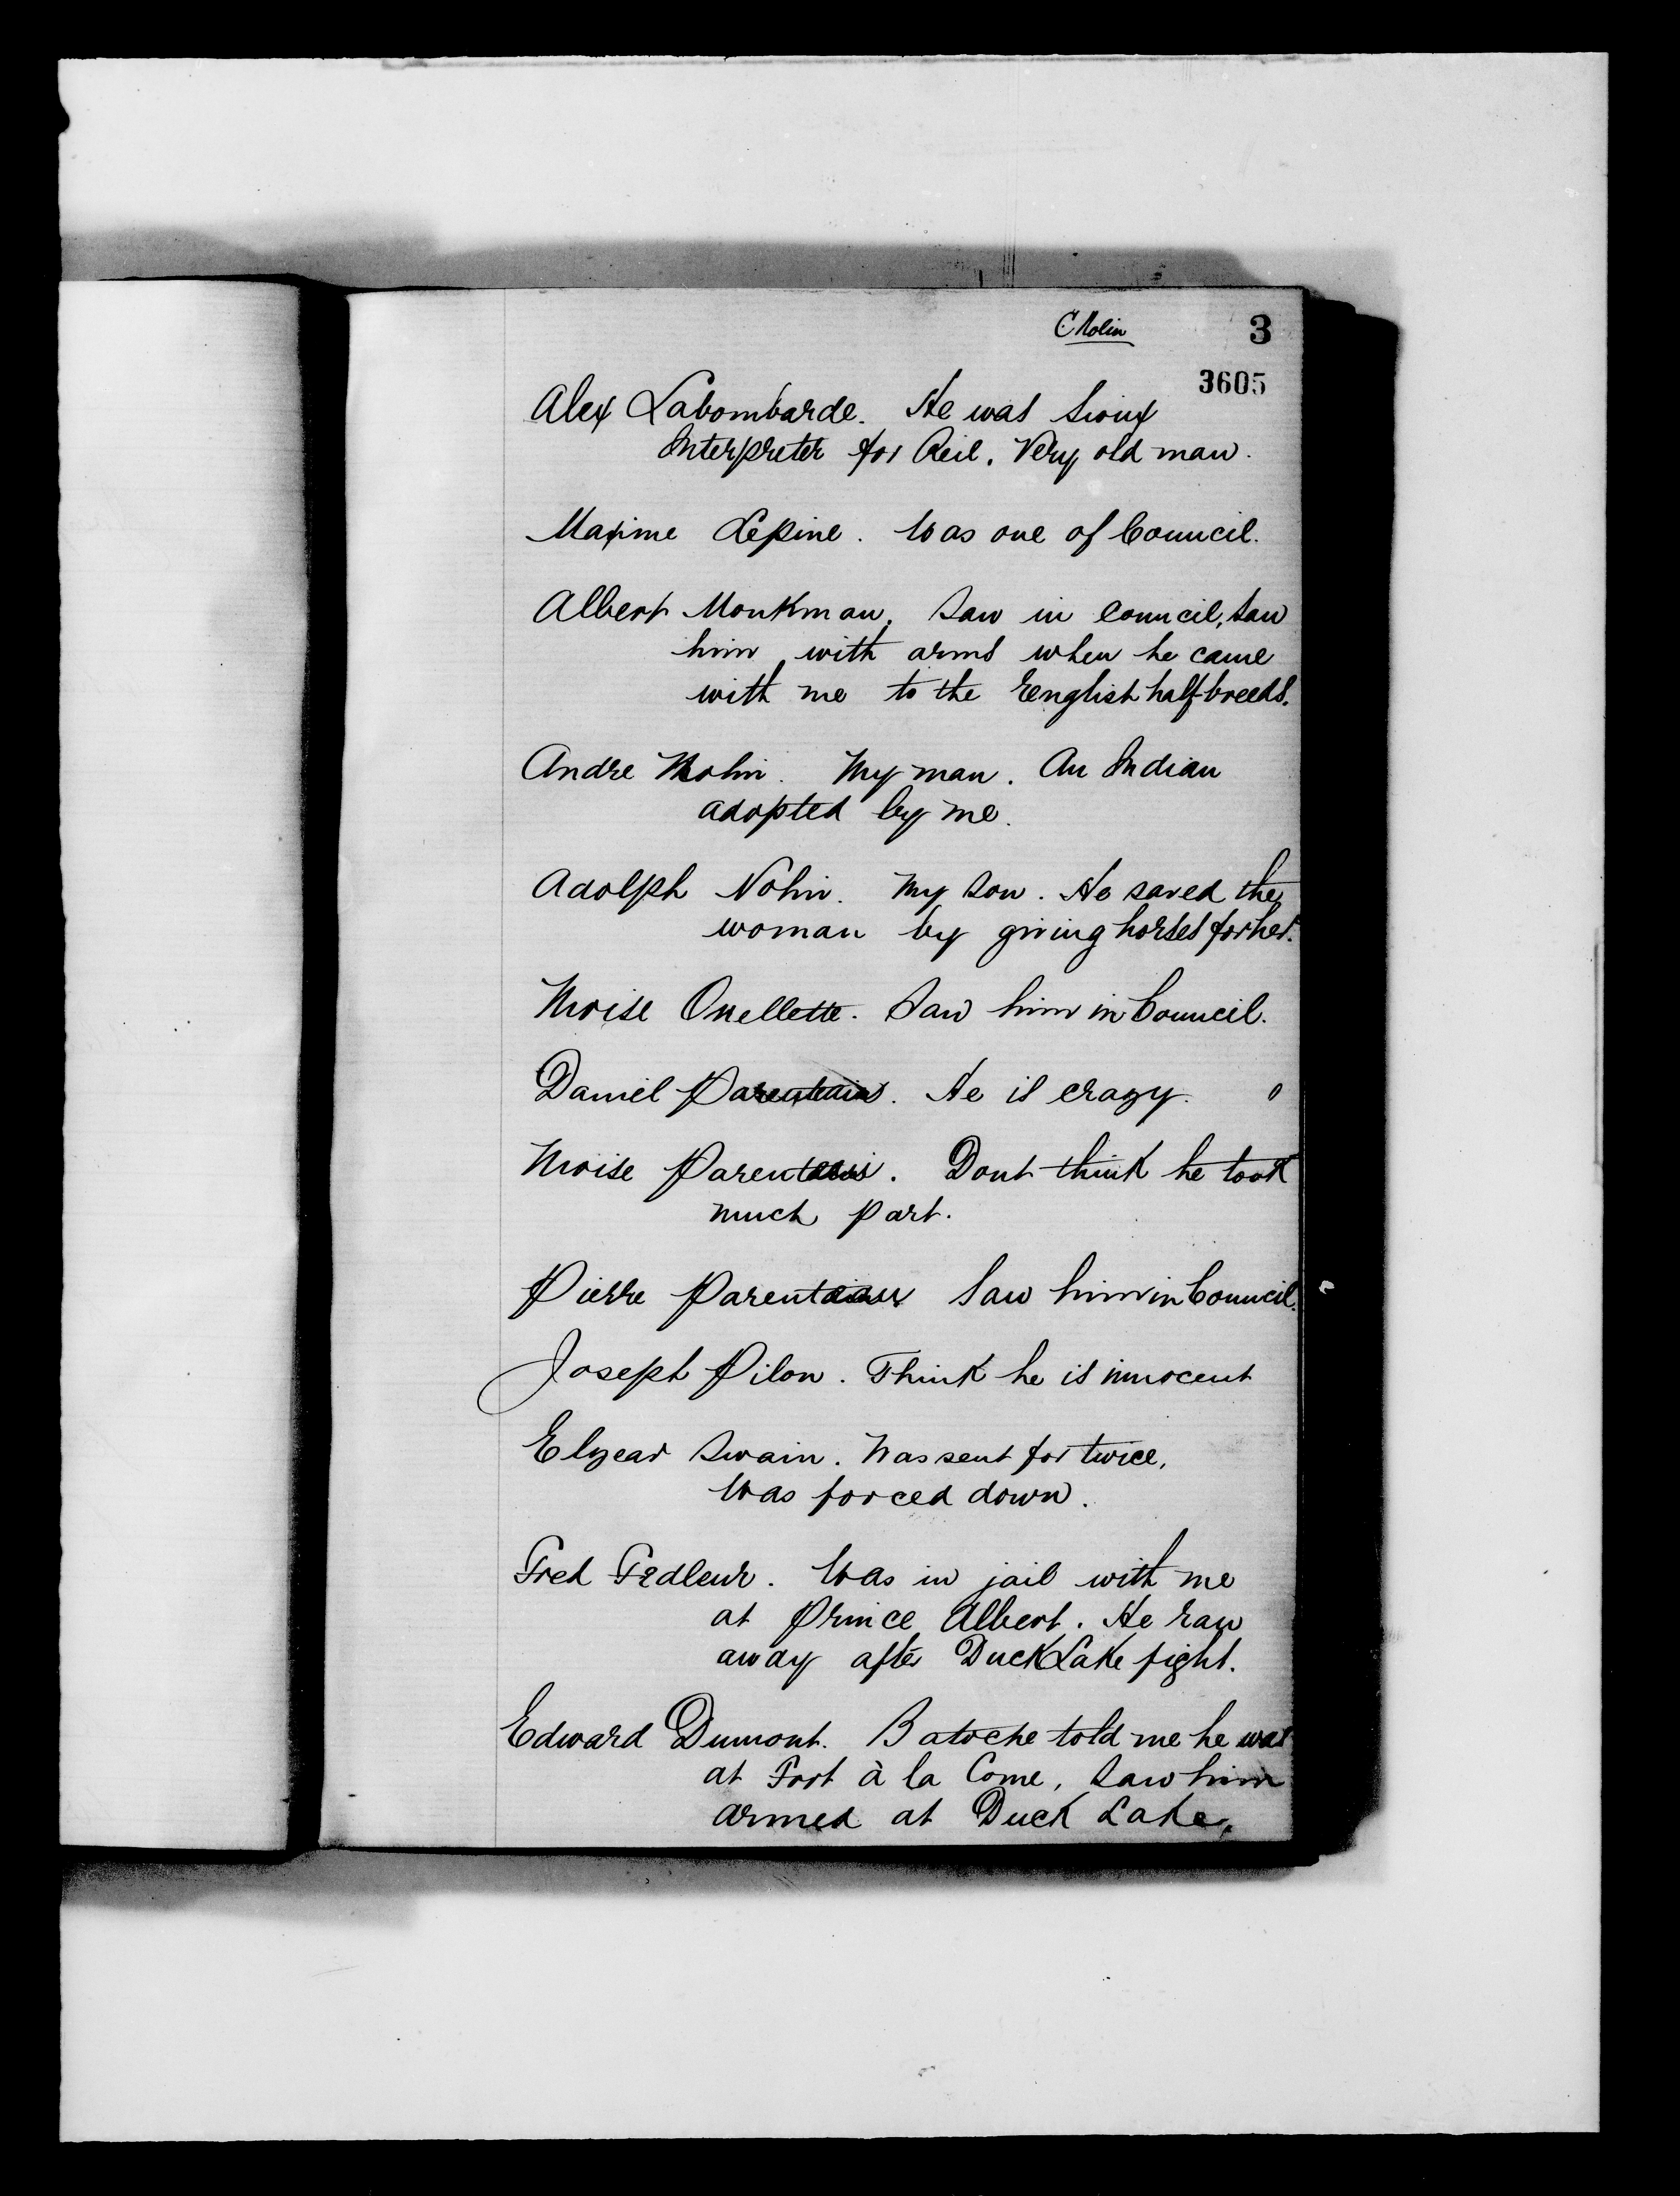 C Nolin
3
3605
Alex Labombarde. He was Sioux
Interpreter for Reil. Very old man.
Maxime Lepine. Was one of Council.
Albert Monkman. Saw in Council, saw
him with arms when he came
with me to the English half-breeds.
Andre Nolin. My man. An Indian
adopted by me.
Adolph Nolin. My son. He saved the
woman by giving horses for her.
Moise Ouellette. Saw him in Council.
Daniel Parenteau. He is crazy.
Moise Parenteau. Dont think he took
much part.
Pierre Parenteau Saw him in Council.
Joseph Pilon. Think he is innocent
Elzear Swain. Was sent for twice,
was forced down.
Fred Fidleur. Was in jail with me
at Prince Albert. He ran
away after Duck Lake fight.
Edward Dumont. Batoche told me he was
at Fort à la Corne, saw him
armed at Duck Lake.